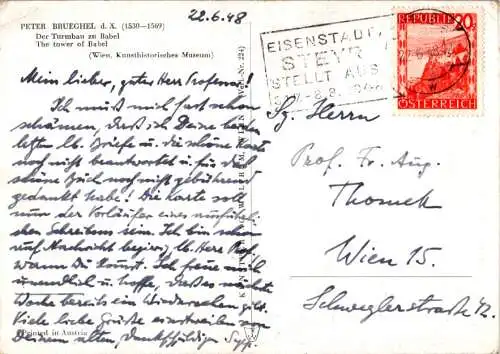 PETER BRUEGHEL d. X. (1530-1569)
Der Turmbau zu Babel
The tower of Babel
(Wien, Kunsthistorisches Museum)
22.6.48
Mein lieber, guter Herr Professor!
Ich muß mich fast schon
schämen, daß ich Deine beiden
letzten lb. Briefe u. die schöne Karte
noch nicht beantwortet u. für das
schöne Buch noch nicht gebührend
gedankt habe! Die Karte soll
nur der Vorläufer eines ausführli-
chen Schreibens sein. Ich bin schon
auf Nachricht begierig, lb. Herr Prof.
wann Du kommst. Ich freue mich
unendlich u. hoffe, daß es nächste
Woche bereits ein Wiedersehen gibt.
Viele liebe Grüße einstweilen von
Deinem alten, dankschuldigen
Printed in Austria
EISENSTADT,
STEYR
STELLT AUS
REPUBLIK
ÖSTERREICH
Sg. Herrn
Prof. Fr. Aug.
Thomek
Wien 15.
Schweglerstraße 42.